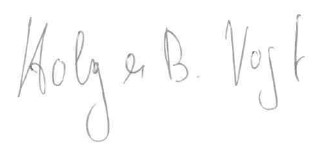 Holger B. Vogt